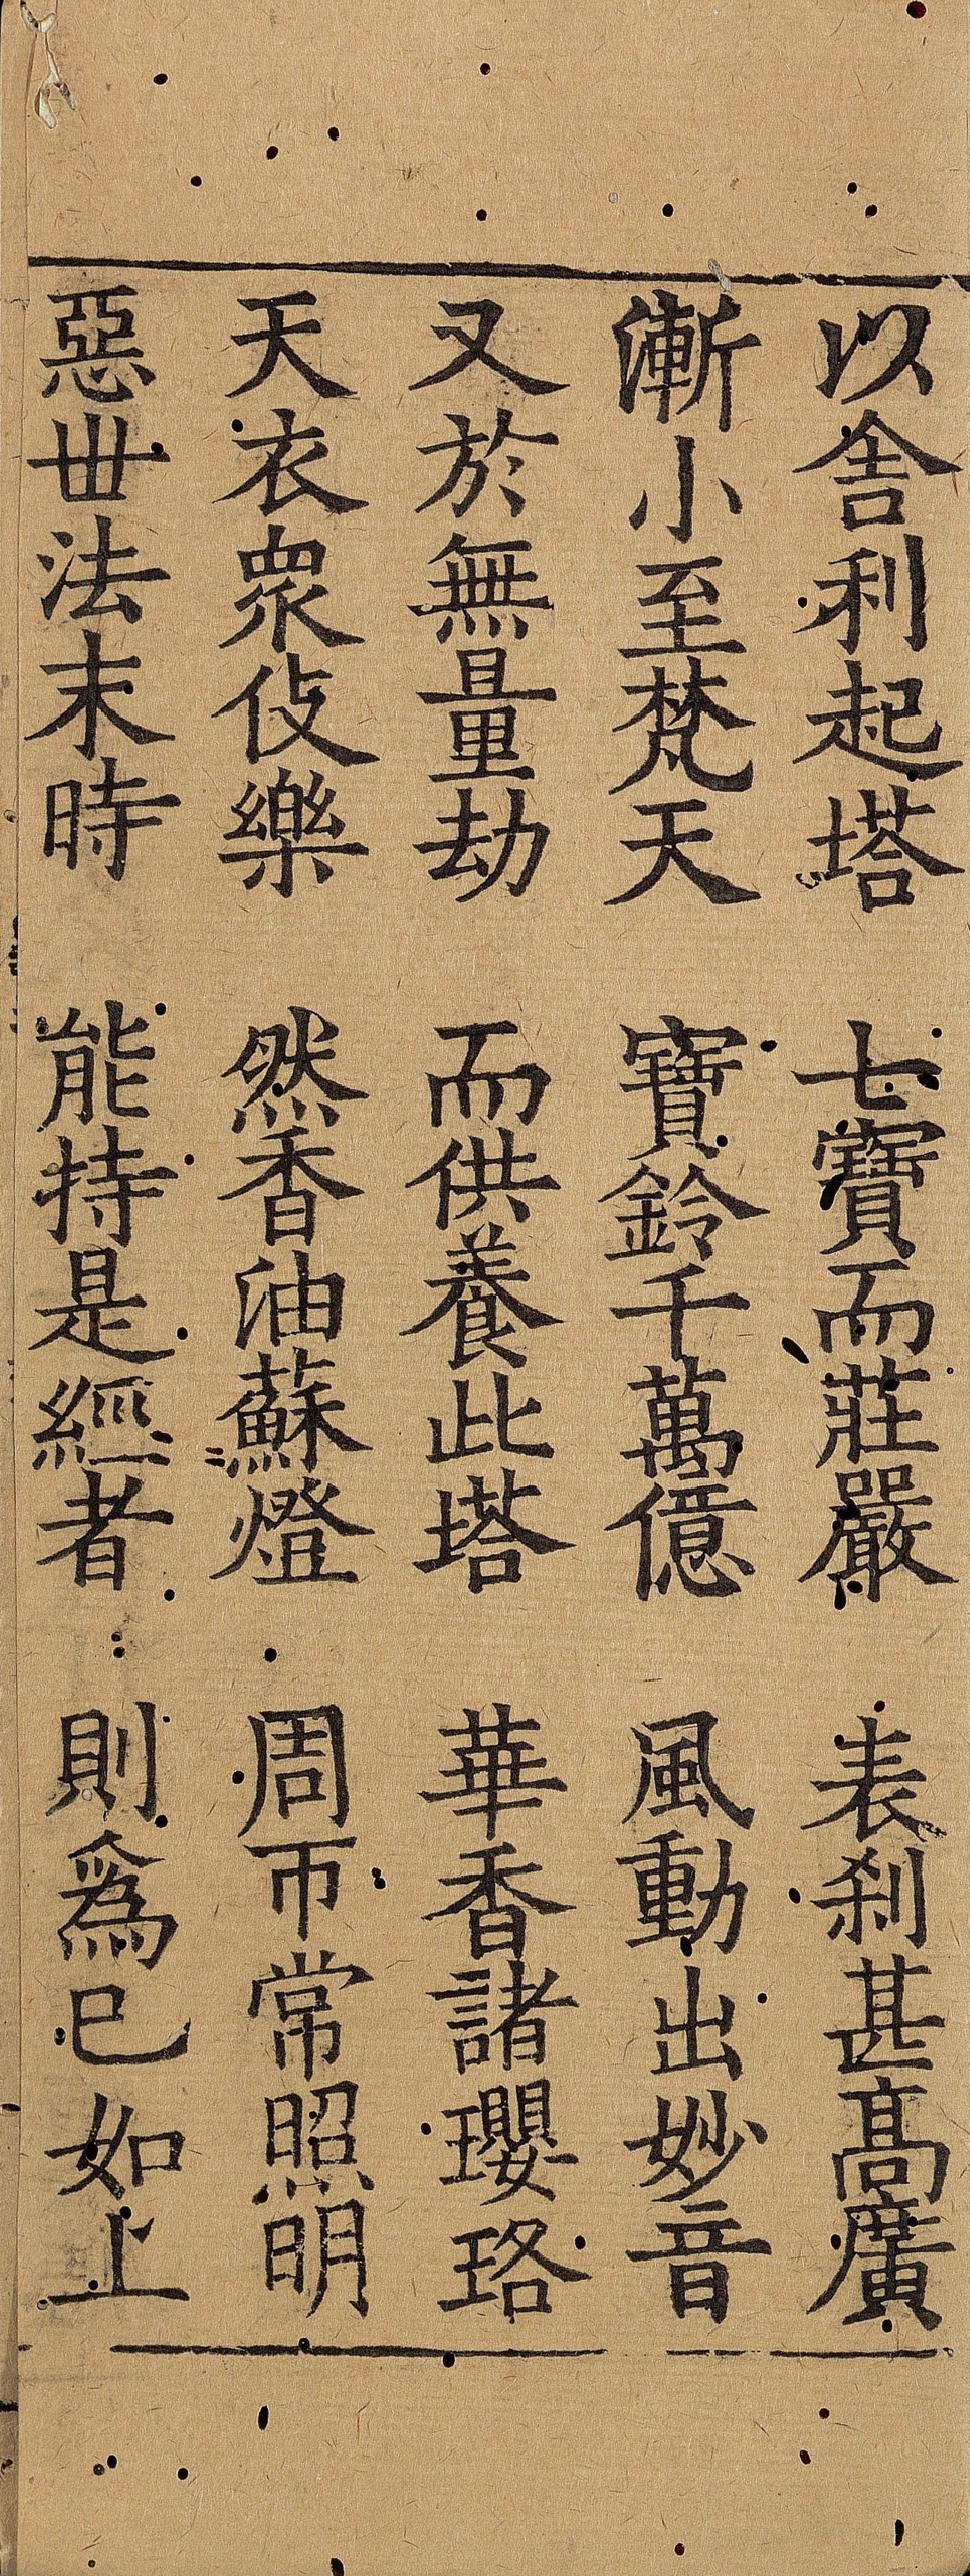 以舍利起塔　七寶而莊嚴　表刹甚髙廣
漸小至梵天　寶鈴千萬億　風動出妙音
又於無量劫　而供養此塔　華香諸瓔珞
天衣衆伎樂　然香油蘇燈　周帀常照明
惡丗法末時　能持是經者　則爲已如上